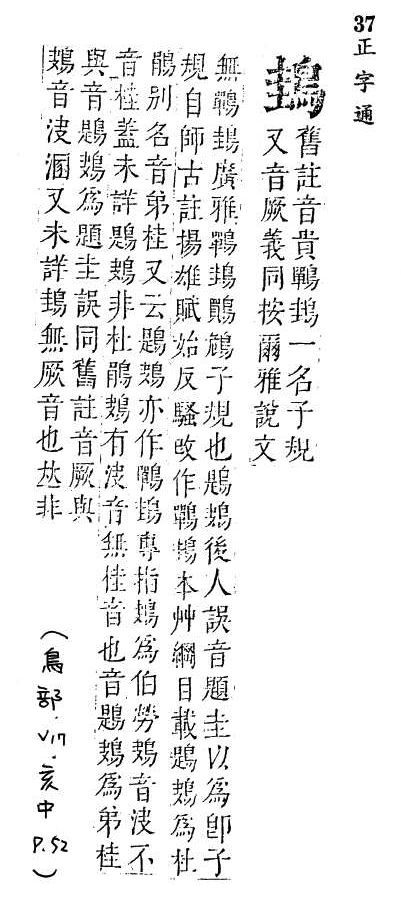 37 正字通
䳏
舊註音貴鷤䳏一名子規
又音厥義同按爾雅說文
無鷤䳏廣雅鷤䳏鷶子規也鶗鴂後人誤音題圭以爲卽子
規自師古註揚雄賦始反騷改作鷤䳏本艸綱目載鶗鴂爲杜
鵑别名音弟桂又云鶗鴂亦作鷤䳏專指鴂爲伯勞鴂音決不
音桂葢未詳鶗鴂非杜鵑鴂有決音無桂音也音鶗鴂爲弟桂
與音鶗鴂爲題圭誤同舊註音厥與
鴂音決溷又未詳䳏無厥音也𠀤非
(鳥部·VIII·亥中 P.52)